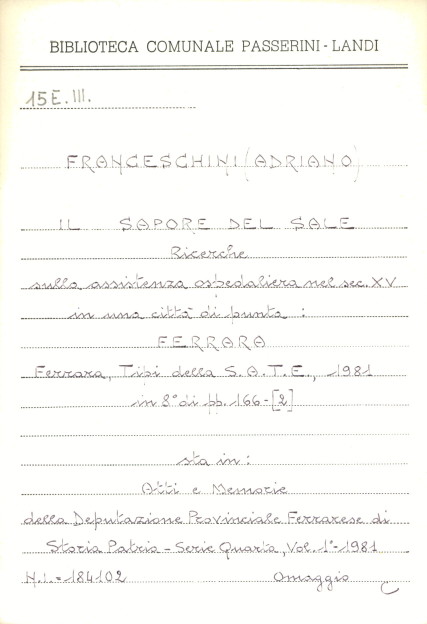 BIBLIOTECA COMUNALE PASSERINI-LANDI
15E.III.
FRANCESCHINI (ADRIANO)
IL SAPORE DEL SALE
Ricerche
sulla assistenza ospedaliera nel sec. XV
in una città di punta:
FERRARA
Ferrara, Tipi della S.A.T.E., 1981
in 8° di pp. 166-[2]
sta in:
Atti e Memorie
della Deputazione Provinciale Ferrarese di
Storia Patria - Serie Quarta, Vol. 1°-1981
N.i.=184102 Omaggio C